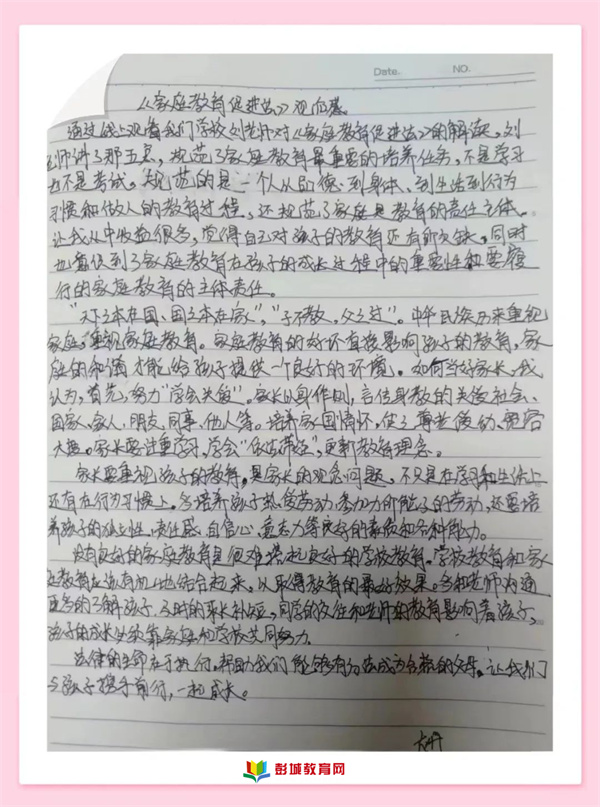 Date. NO.
《家庭教育促进法》观后感
通过线上观看我们学校刘老师对《家庭教育促进法》的解读。刘
老师讲了那五点，规范了家庭教育最重要的培养任务，不是学习
也不是考试。规范的是一个人从品德、到身体、到生活到行为
习惯和做人的教育过程，还规范了家庭是教育的责任主体。
让我从中收益很多，觉得自己对孩子的教育还有所欠缺。同时
也意识到了家庭教育在孩子的成长过程中的重要性和要履
行的家庭教育的主体责任。
“天下之本在国、国之本在家”，“子不教，父之过”。中华民族历来重视
家庭，重视家庭教育。家庭教育的好坏直接影响孩子的教育，家
庭的和谐才能给孩子提供一个良好的环境。如何当好家长，我
认为，首先，努力“学会关爱”。家长以身作则，言传身教的关爱社会、
国家、家人、朋友、同事、他人等。培养家国情怀，使之尊老爱幼、宽容
大度。家长要注重学习，学会“依法带娃”，更新教育理念。
家长要重视孩子的教育。是家长的观念问题，不只是在学习和生活上
还有在行为习惯上。多培养孩子热爱劳动，参加力所能及的劳动，还要培
养孩子的独立性、责任感、自信心、意志力等良好的素质和各种能力。
没有良好的家庭教育是很难撑起良好的学校教育。学校教育和家
庭教育应该有机地结合起来，以取得教育的最好效果。多和老师沟通
更多的了解孩子，及时的取长补短，同学的交往和老师的教育影响着孩子，
孩子的成长必须靠家庭和学校共同努力
法律的生命在于执行。帮助我们能够有方法成为合格的父母。让我们
与孩子携手前行，一起成长。
彭城教育网